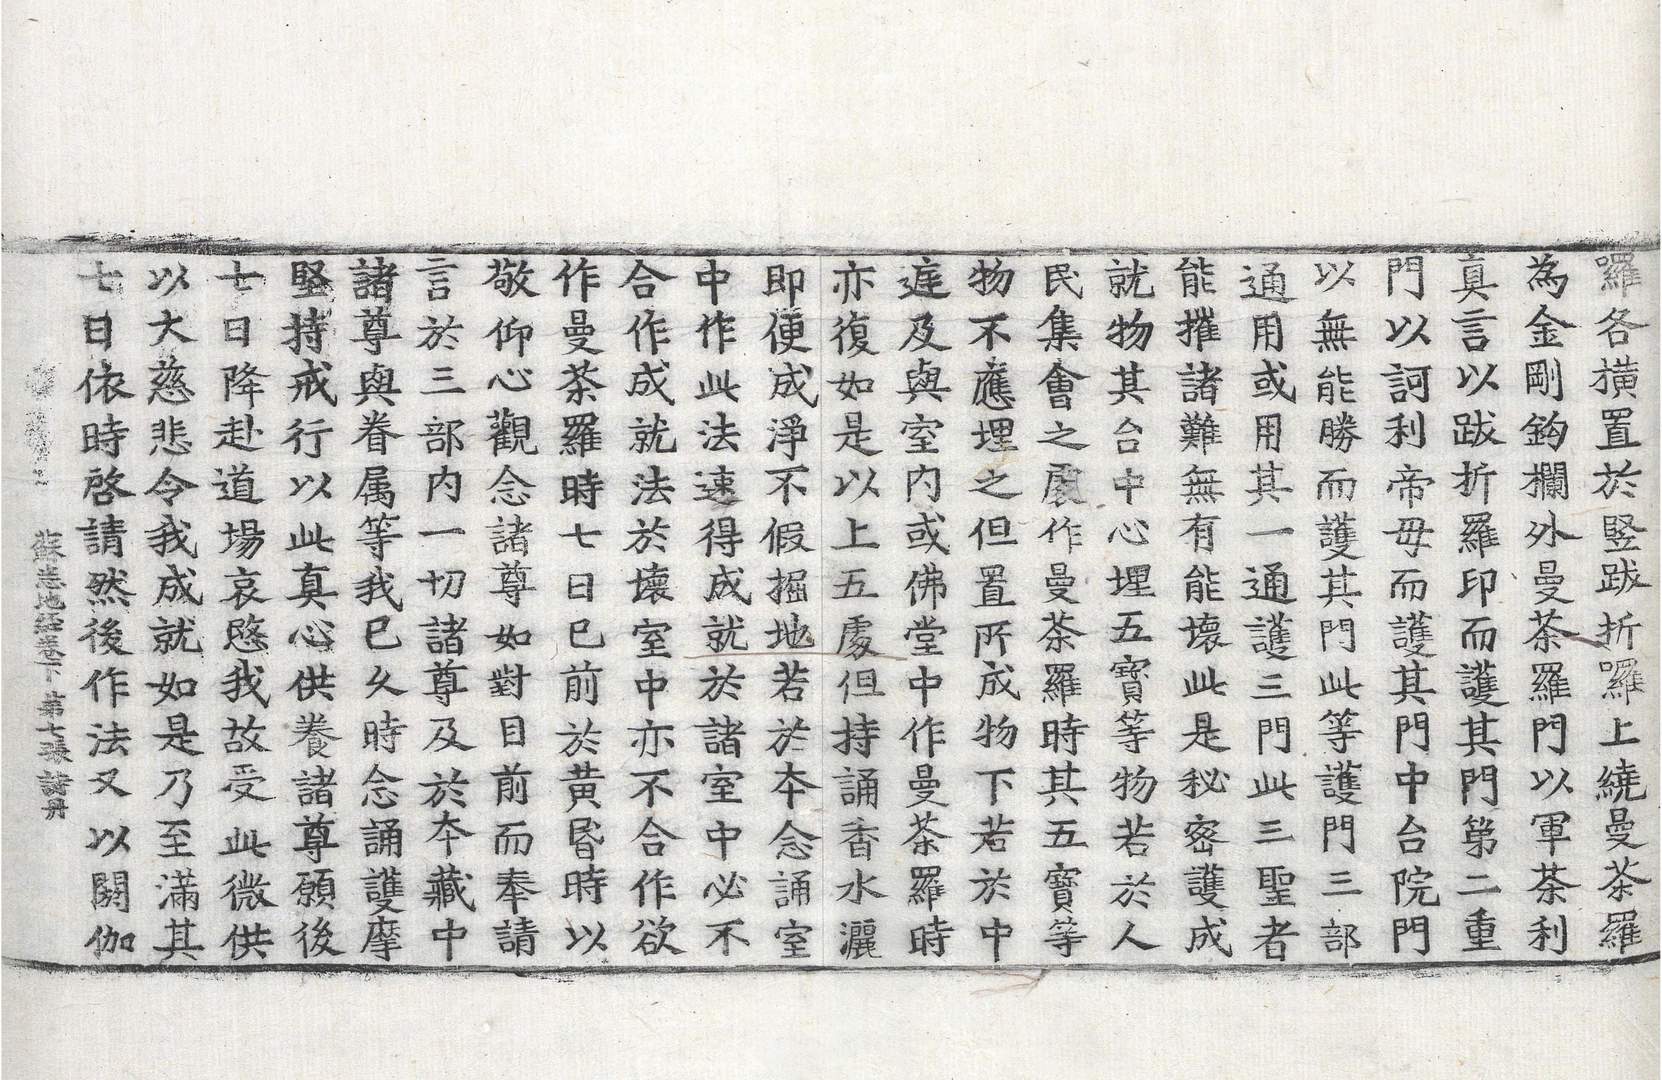 囉各撗置於竪跋折囉上繞曼茶羅
為金剛鈎欄外曼茶羅門以軍茶利
真言以跋折羅印而護其門第二重
門以訶利帝母而護其門中台院門
以無能勝而護其門此等護門三部
通用或用其一通護三門此三聖者
能摧諸難無有能壞此是秘密護成
就物其台中心埋五寶等物若於人
民集會之處作曼茶羅時其五寶等
物不應埋之但置所成物下若於中
庭及與室内或佛堂中作曼茶羅時
亦復如是以上五處但持誦香水灑
即便成淨不假掘地若於本念誦室
中作此法速得成就於諸室中必不
合作成就法於壞室中亦不合作欲
作曼茶羅時七日已前於黄昏時以
敬仰心觀念諸尊如對目前而奉請
言於三部内一切諸尊及於本藏中
諸尊與眷属等我已久時念誦護摩
堅持戒行以此真心供養諸尊願後
七日降赴道場哀愍我故受此微供
以大慈悲令我成就如是乃至滿其
七日依時啓請然後作法又以閼伽
蘇悉地經卷下 第七張 諸丹